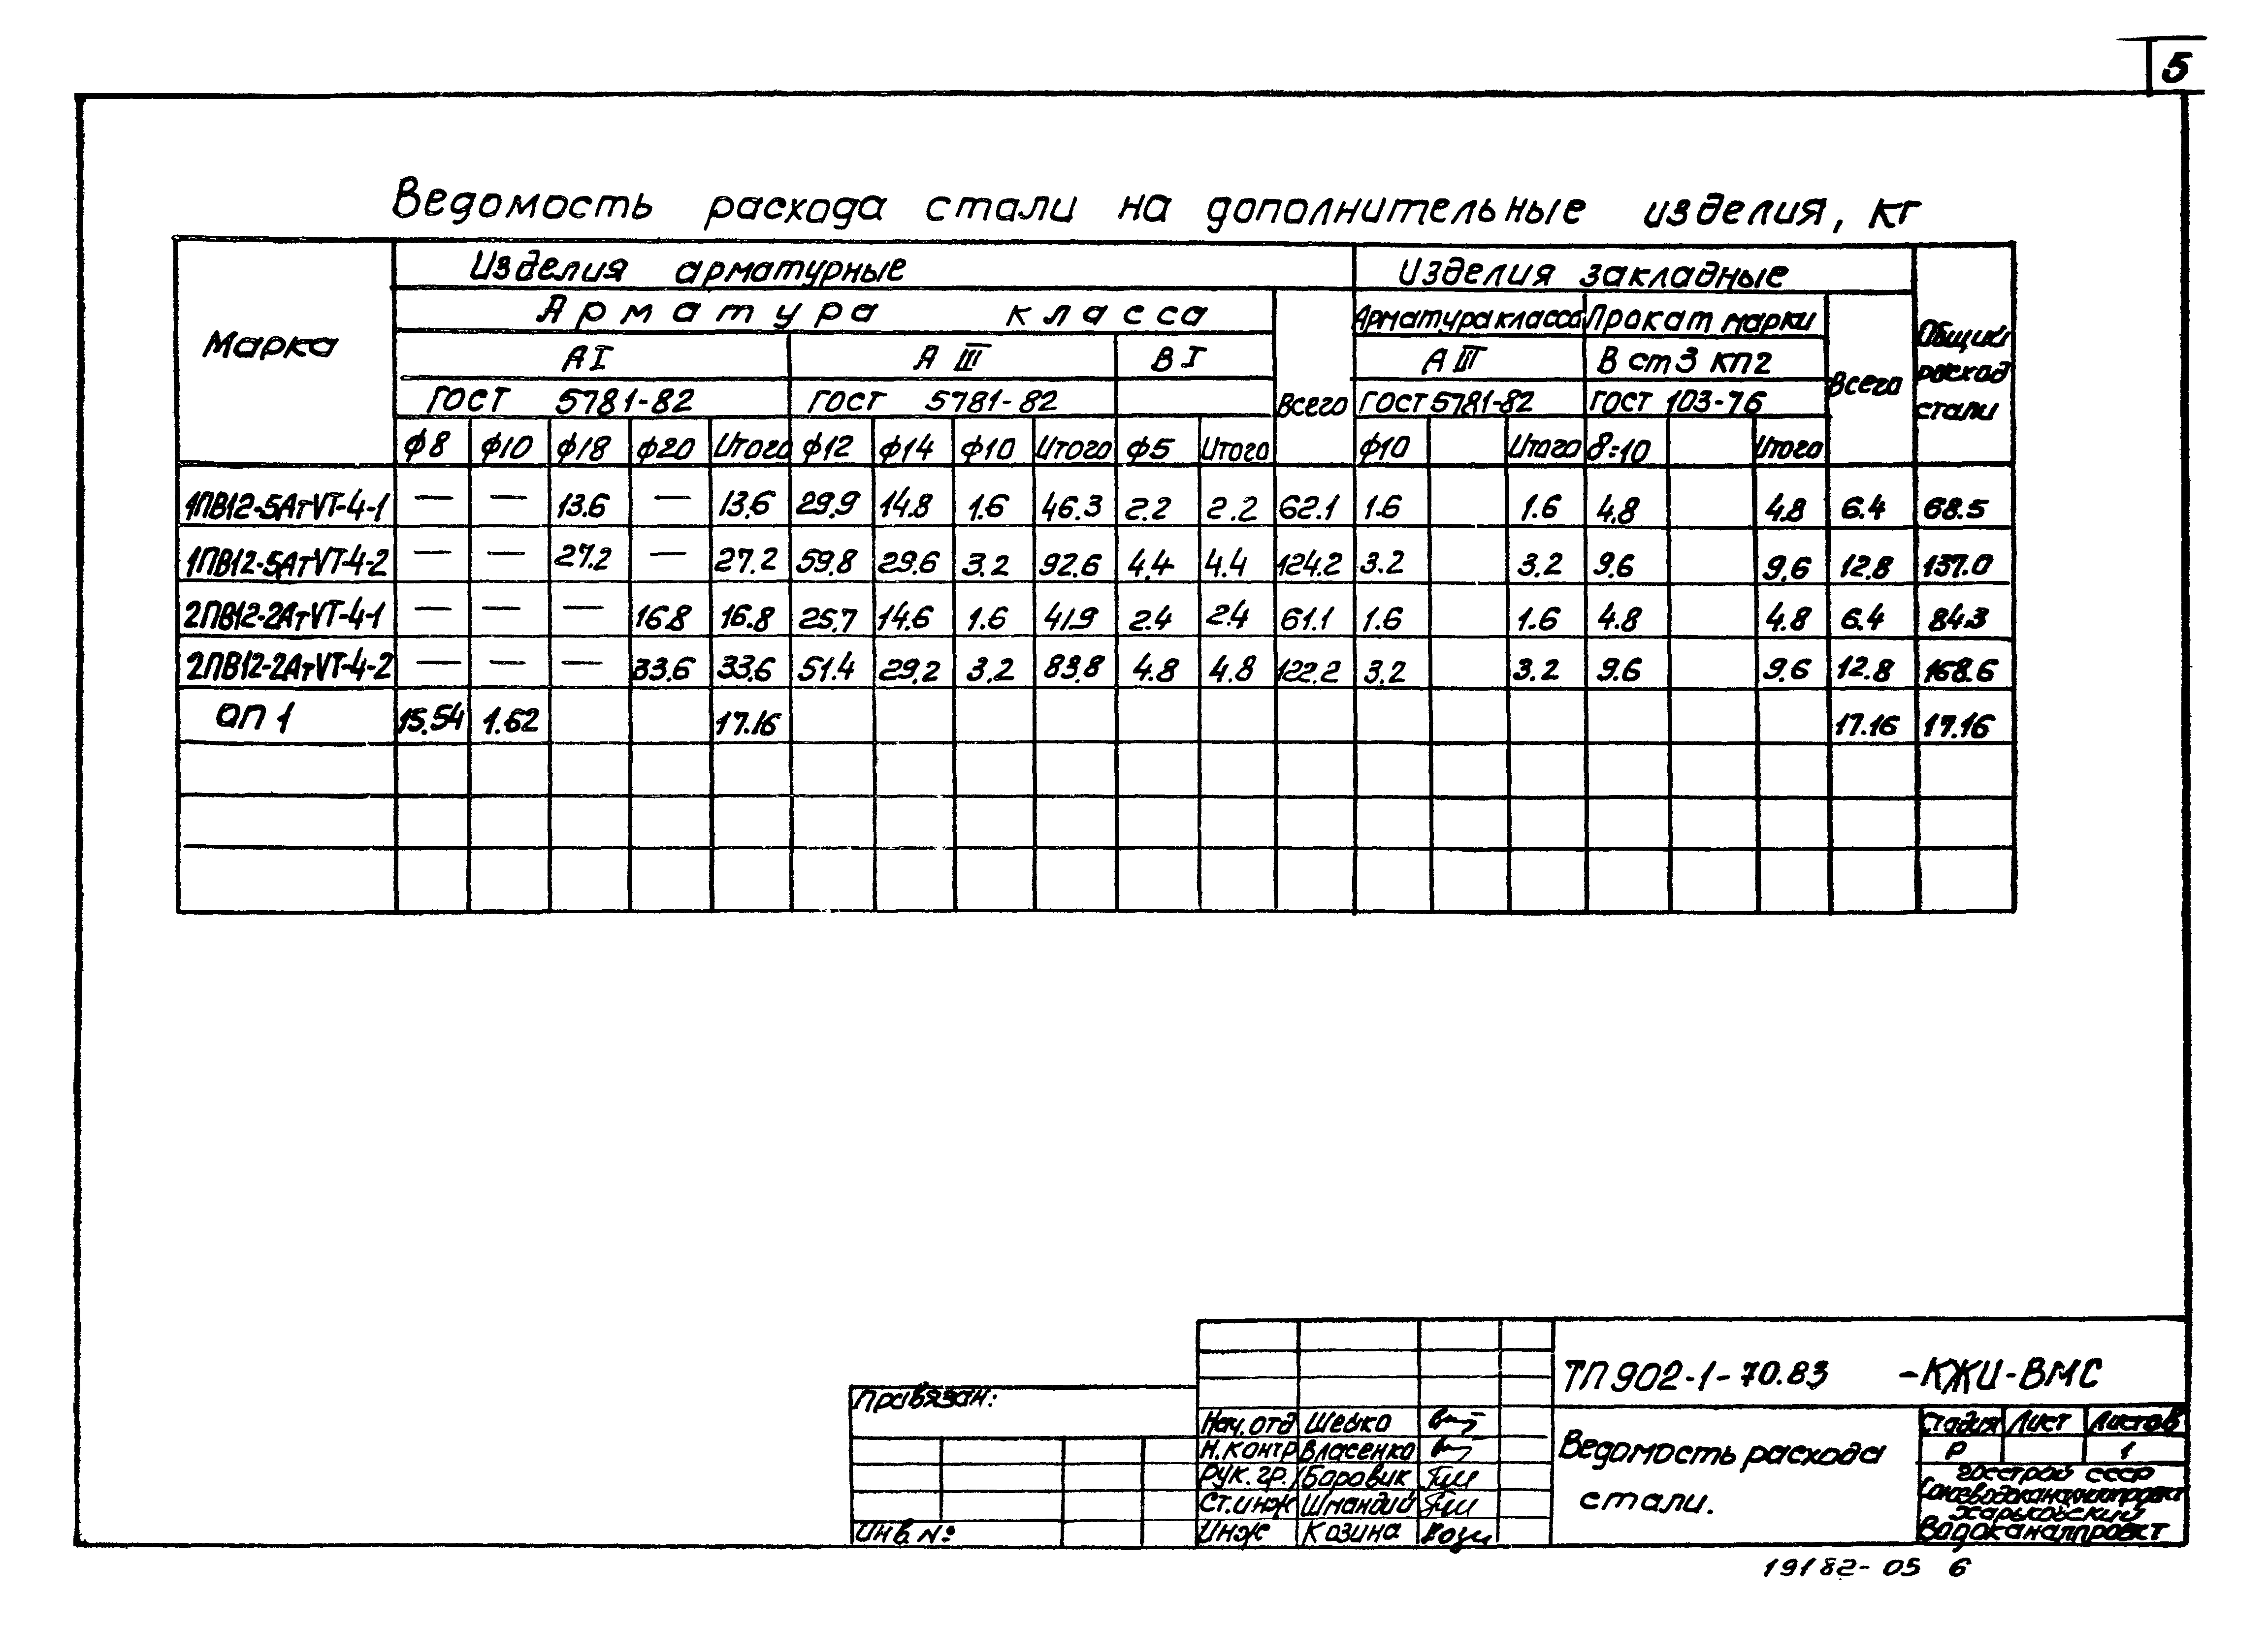 5
Ведомость расхода стали на дополнительные изделия, кг
Марка
Изделия арматурные
Изделия закладные
Общий расход стали
Арматура класса
Всего
Арматура класса
Прокат марки
Всего
А I
А III
В I
А III
В ст 3 кп 2
ГОСТ 5781-82
ГОСТ 5781-82
ГОСТ 5781-82
ГОСТ 103-76
ф8 ф10 ф18 ф20 Итого ф12 ф14 ф10 Итого ф5 Итого ф10 Итого δ=10 Итого
1ПВ12-5АтVТ-4-1 — — 13.6 — 13.6 29.9 14.8 1.6 46.3 2.2 2.2 62.1 1.6 1.6 4.8 4.8 6.4 68.5
1ПВ12-5АтVТ-4-2 — — 27.2 — 27.2 59.8 29.6 3.2 92.6 4.4 4.4 124.2 3.2 3.2 9.6 9.6 12.8 137.0
2ПВ12-2АтVТ-4-1 — — — 16.8 16.8 25.7 14.6 1.6 41.9 2.4 2.4 61.1 1.6 1.6 4.8 4.8 6.4 84.3
2ПВ12-2АтVТ-4-2 — — — 33.6 33.6 51.4 29.2 3.2 83.8 4.8 4.8 122.2 3.2 3.2 9.6 9.6 12.8 168.6
ОП 1 15.54 1.62 17.16 17.16 17.16
ТП 902-1-70.83 -КЖИ-ВМС
Привязан:
Инв №
Нач. отд Шейко
Н. контр Власенко
Рук. гр. Боровик
Ст. инж Шмандий
Инж Козина
Ведомость расхода
стали.
Стадия Лист Листов
Р 1
Госстрой СССР
Союзводоканалниипроект
Харьковский
Водоканалпроект
19182-05 6